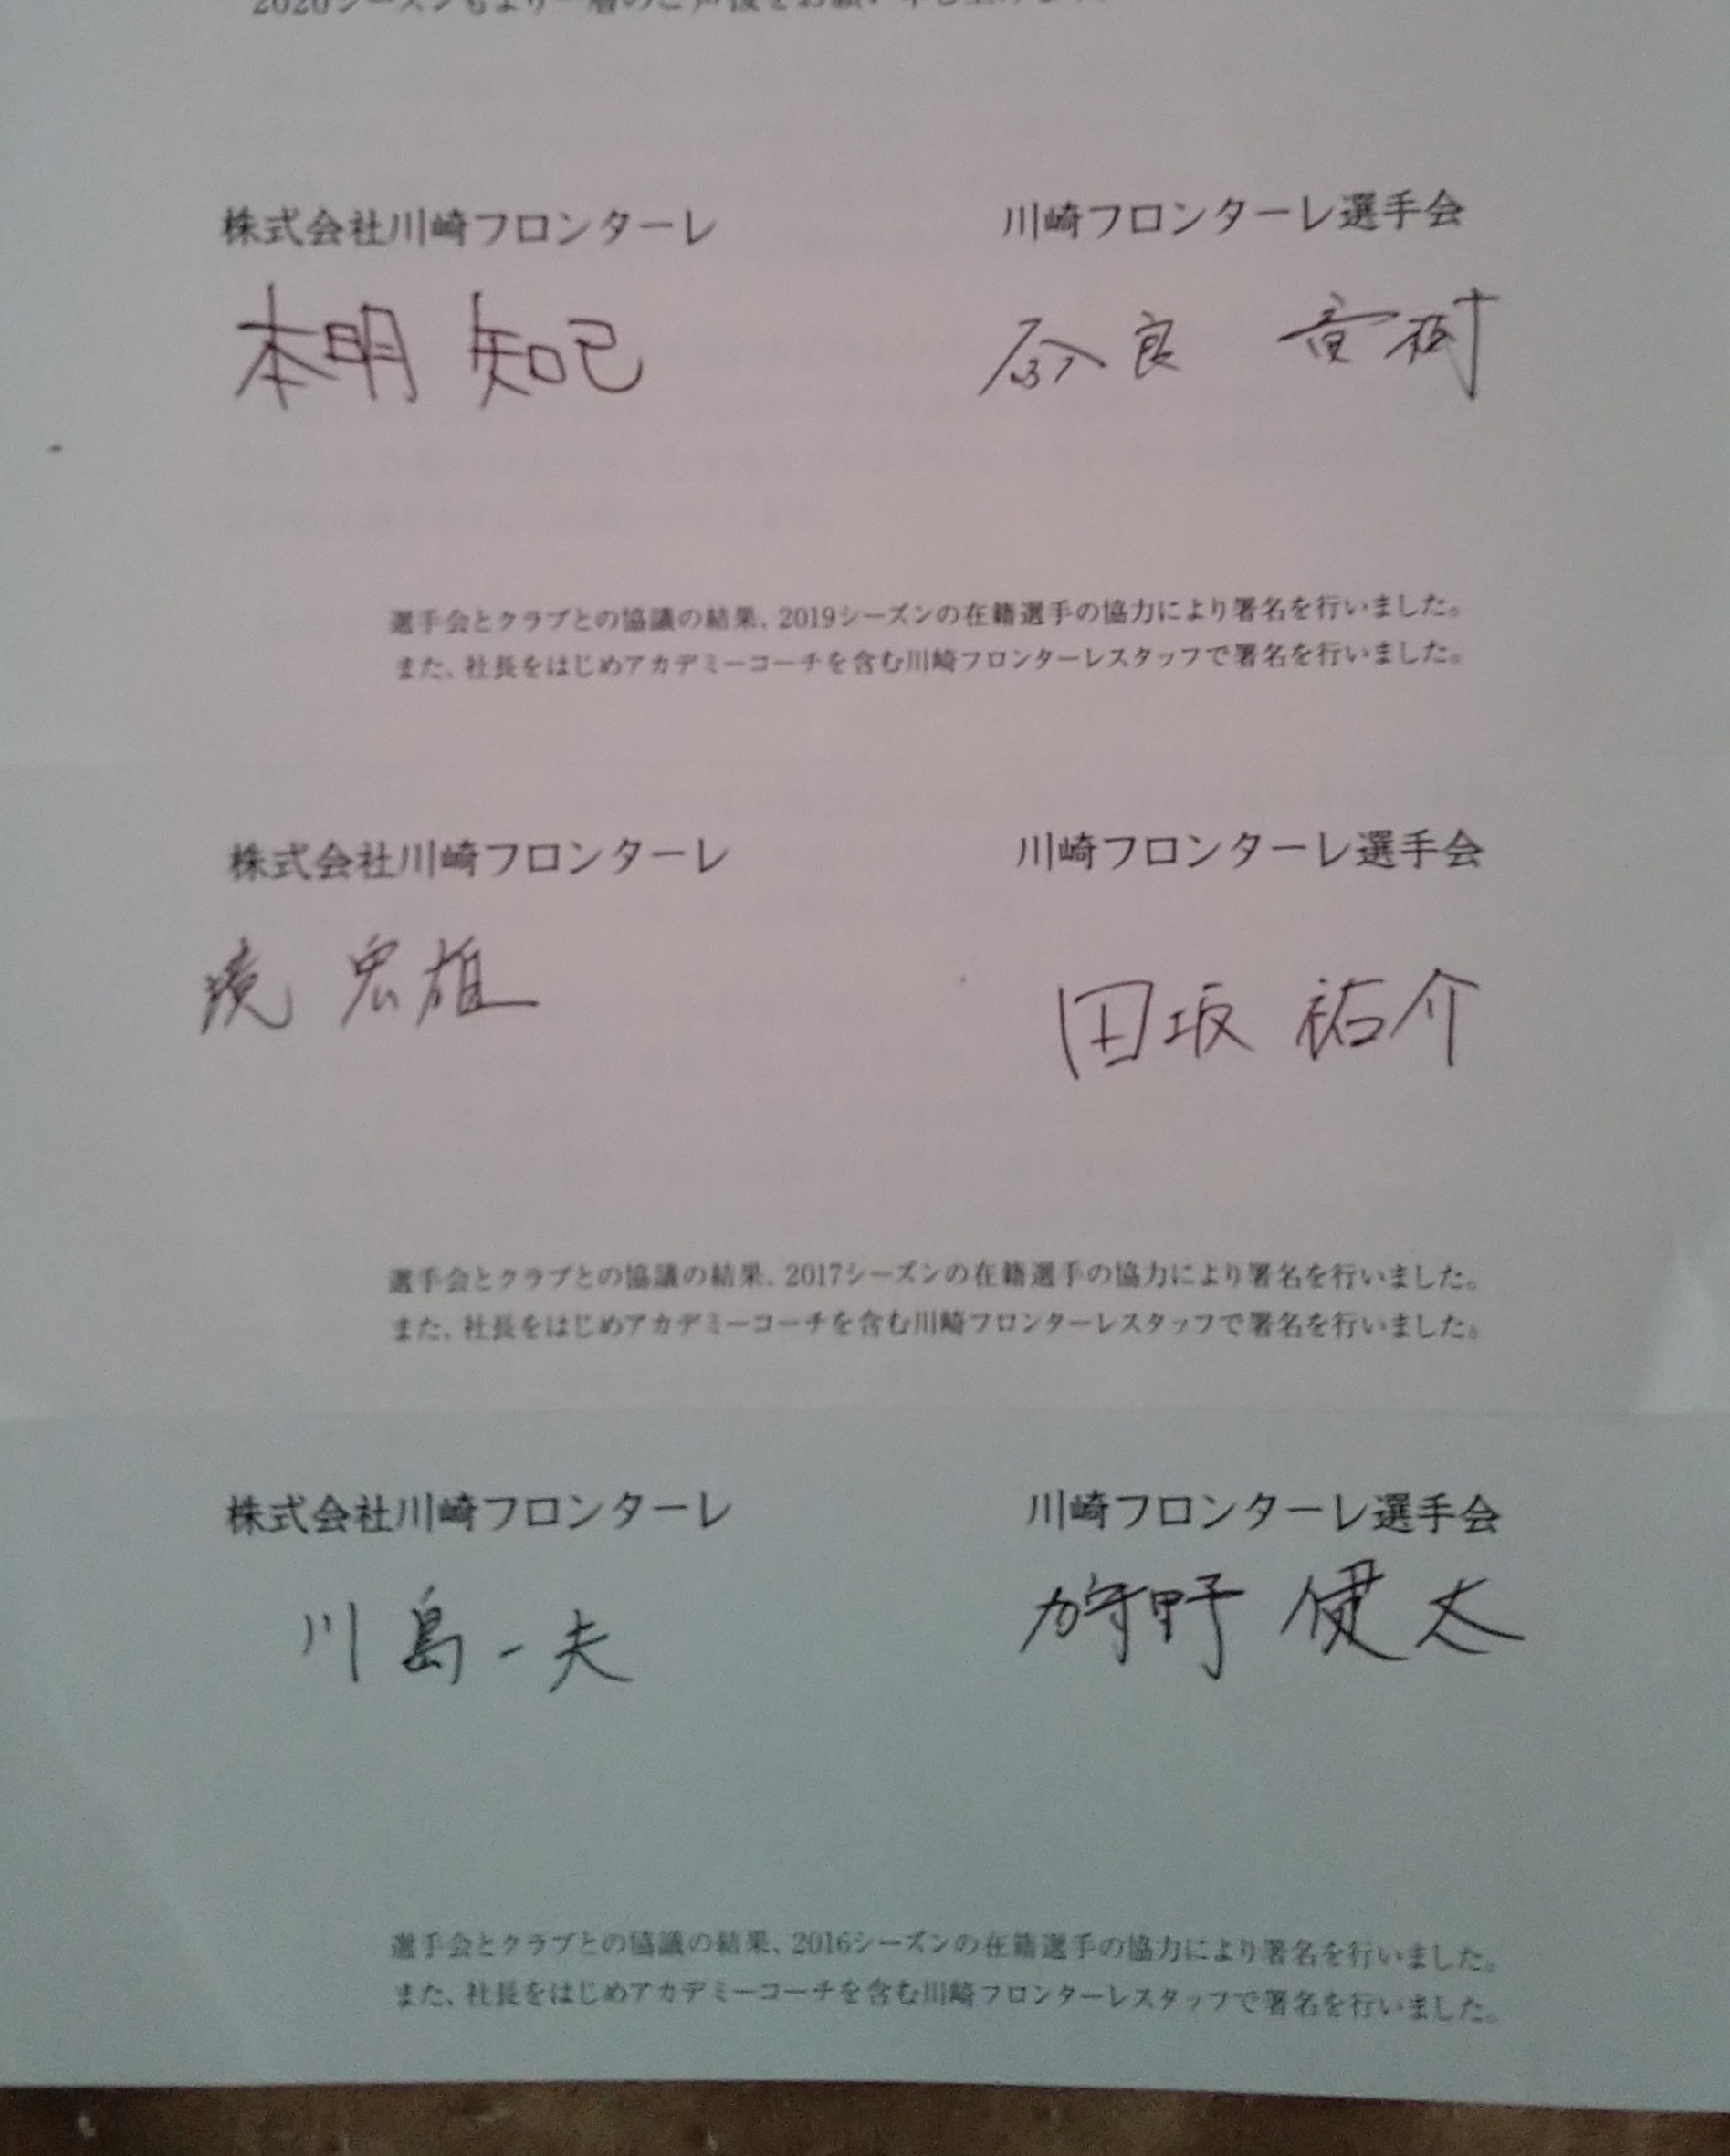 2020シーズンもより一層のご声援をお願い申し上げます。
株式会社川崎フロンターレ 川崎フロンターレ選手会
本明 知己 奈良 竜樹
選手会とクラブとの協議の結果、2019シーズンの在籍選手の協力により署名を行いました。
また、社長をはじめアカデミーコーチを含む川崎フロンターレスタッフで署名を行いました。
株式会社川崎フロンターレ 川崎フロンターレ選手会
宏雄 田坂 祐介
選手会とクラブとの協議の結果、2017シーズンの在籍選手の協力により署名を行いました。
また、社長をはじめアカデミーコーチを含む川崎フロンターレスタッフで署名を行いました。
株式会社川崎フロンターレ 川崎フロンターレ選手会
川島一夫 狩野 健太
選手会とクラブとの協議の結果、2016シーズンの在籍選手の協力により署名を行いました。
また、社長をはじめアカデミーコーチを含む川崎フロンターレスタッフで署名を行いました。